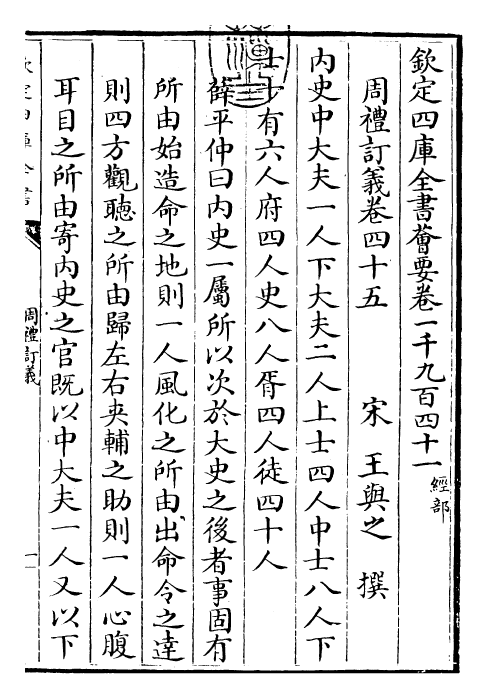 欽定四庫全書薈要卷一千九百四十一 經部
周禮訂義卷四十五 宋 王與之 撰
內史中大夫一人下大夫二人上士四人中士八人下
士十有六人府四人史八人胥四人徒四十人
薛平仲曰內史一屬所以次於大史之後者事固有
所由始造命之地則一人風化之所由出命令之達
則四方觀聽之所由歸左右夾輔之助則一人心腹
耳目之所由寄內史之官既以中大夫一人又以下
周禮訂義
一